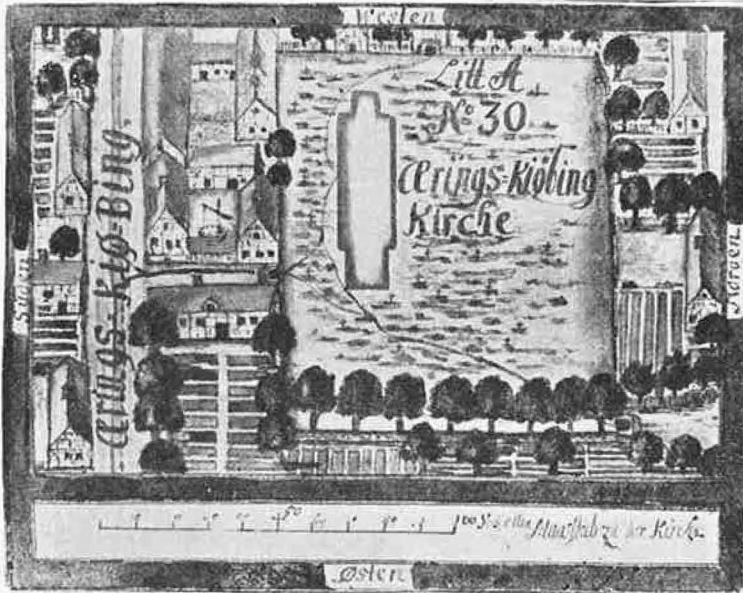 Westen
Litt A
No 30
Ærings-Kiøbing
Kirche
Ærings-Kiø-Bing.
Norden
50
100
Maasstab zu der Kirche
Østen